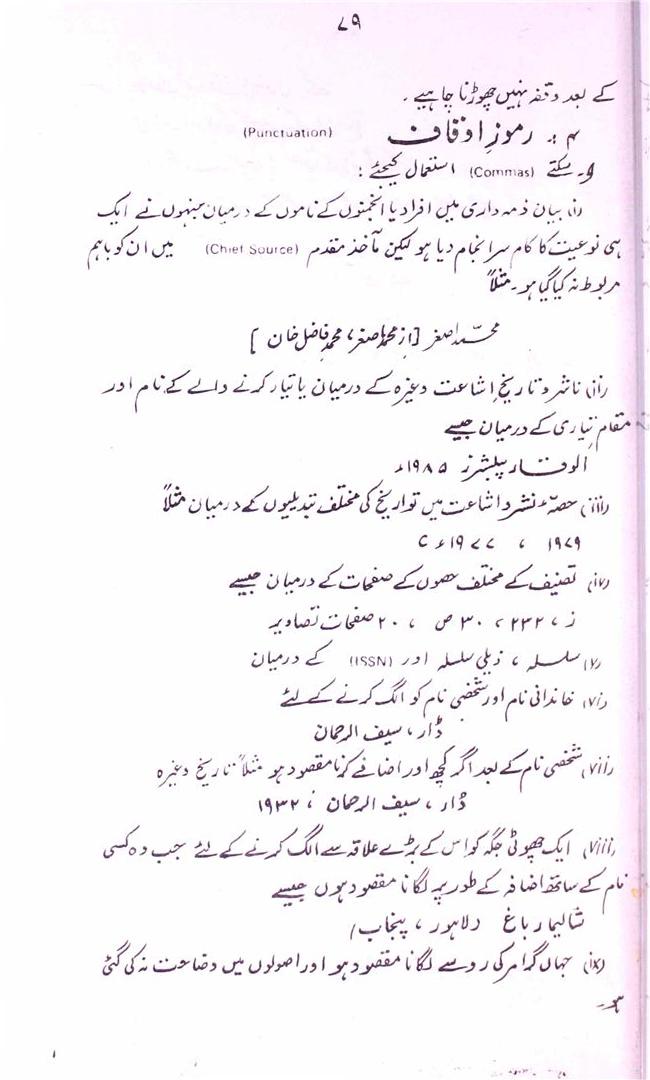 ۷۹
کے بعد وقفہ نہیں چھوڑنا چاہیے ۔
۴ :۔ رموزِ اوقاف (Punctuation)
و۔ سکتے (Commas) استعمال کیجئے :
(i) بیان ذمہ داری میں افراد یا انجمنوں کے ناموں کے درمیان جنہوں نے ایک
ہی نوعیت کا کام سر انجام دیا ہو لیکن مآخذ مقدم (Chief Source) میں ان کو باہم
مربوط نہ کیا گیا ہو۔ مثلاً
محمّد اصغر [از محمد اصغر، محمد فاضل خان ]
(ii) ناشر و تاریخ اشاعت وغیرہ کے درمیان یا تیار کرنے والے کے نام اور
مقام تیاری کے درمیان جیسے
الوقار پبلشرز ۱۹۸۵ء
(iii) حصہء نشر و اشاعت میں تواریخ کی مختلف تبدیلیوں کے درمیان مثلاً
۱۹۷۹ ، ۱۹۷۷ء C
(iv) تصنیف کے مختلف حصوں کے صفحات کے درمیان جیسے
ز ، ۲۳۲ ، ۳۰ ص ، ۲۰ صفحات تصاویر
(v) سلسلہ ، ذیلی سلسلہ اور (ISSN) کے درمیان
(vi) خاندانی نام اور شخصی نام کو الگ کرنے کے لئے
ڈار ، سیف الرحمان
(vii) شخصی نام کے بعد اگر کچھ اور اضافے کرنا مقصود ہو مثلاً تاریخ وغیرہ
ڈار ، سیف الرحمان ، ۱۹۳۲
(viii) ایک چھوٹی جگہ کو اس کے بڑے علاقہ سے الگ کرنے کے لئے جب وہ کسی
نام کے ساتھ اضافہ کے طور پر لگانا مقصود ہوں جیسے
شالیمار باغ (لاہور ، پنجاب)
(ix) جہاں گرامر کی رو سے لگانا مقصود ہو اور اصولوں میں وضاحت نہ کی گئی
ہو۔